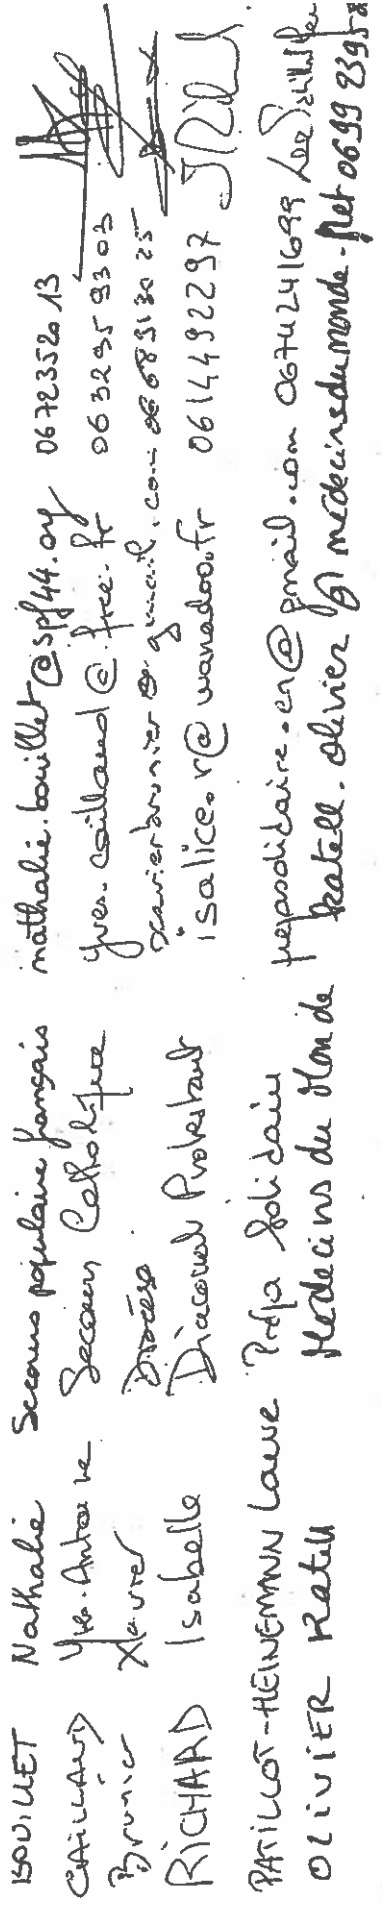 BOUILLET Nathalie Secours populaire français nathalie.bouillet@spf44.org 0672352613
CAILLAUD Yves-Antoine Secours Catholique yves.caillaud@free.fr 0632959303
Brunier Xavier Diocèse xavierbrunier@gmail.com 0689313025
RICHARD Isabelle Diaconat Protestant isalice.r@wanadoo.fr 0614492297
PATILLOT-HEINEMANN Laure Prépa Solidaire prepasolidaire.en@gmail.com 0674241699
OLIVIER Katell Medecins du Monde katell.olivier@medecinsdumonde.net 0699 2395